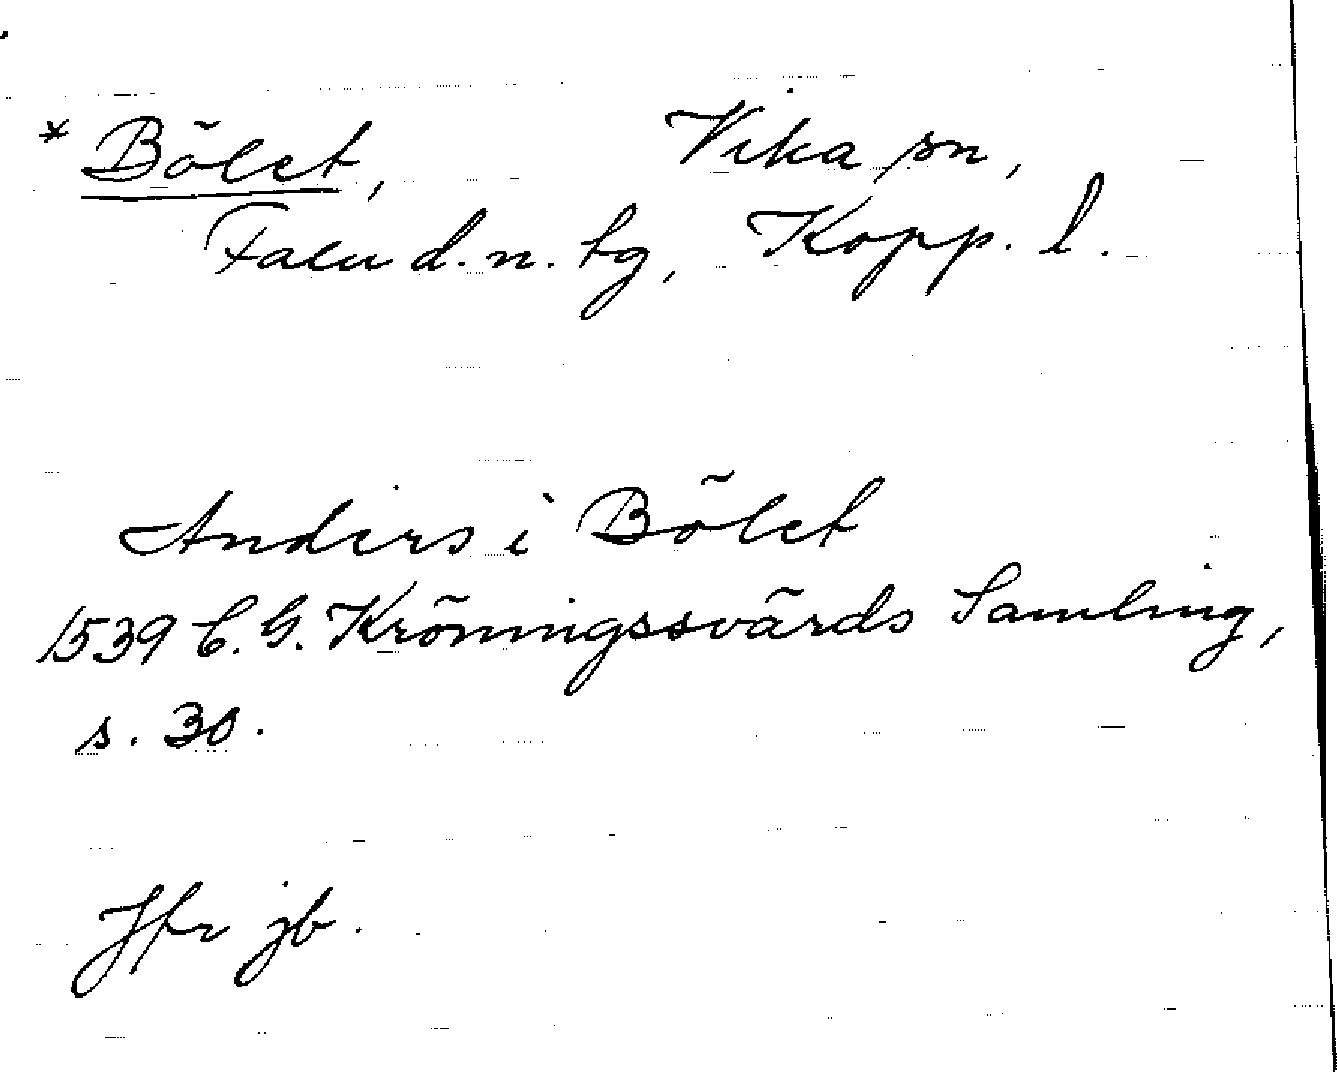 * Bölet, Vika sn,
Falu d.n. tg, Kopp. l.
Anders i Bölet
1539 C.G. Kröningssvärds Samling,
s. 30.
Jfr jb.